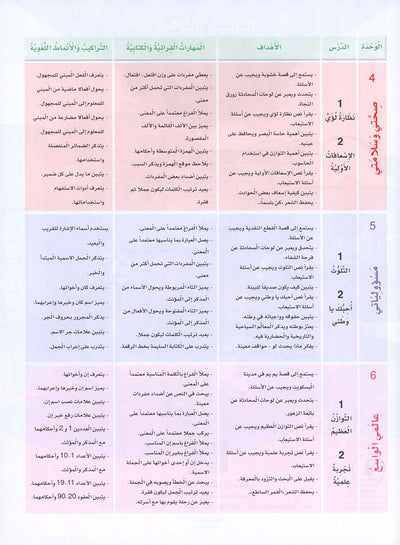 الوَحْدَة الدَّرْس الأَهْدَاف المَهَارات القِرائيَّة وَالكِتابيَّة التَّراكيب وَالأَنْماط اللُّغَويَّة
4
صِحَّتي وَسَلامَتي
1
نَظَارَةُ لُؤَيٍّ
2
الإِسْعافاتُ
الأَوَّليَّةُ
يستمع إلى قصة خشونة ويجيب عن
الأسئلة.
يتحدث ويعبر عن لوحات المحادثة زورق
النجاة.
يقرأ نص نظارة لؤي ويجيب عن أسئلة
الاستيعاب.
يتبين أهمية حاسة البصر ويحافظ على
عينيه.
يتبين أهمية التوازن في استخدام
الحاسوب.
يقرأ نص الإسعافات الأولية ويجيب عن
أسئلة الاستيعاب.
يتبين كيفية إسعاف بعض الحوادث.
يحفظ الشعر «كن بلسماً».
- يعطي مفردات على وزن أفتعل، افتعال.
- يتبين المفردات التي تحمل أكثر من
معنى.
- يملأ الفراغ معتمداً على المعنى.
- يميز بين الألف القائمة والألف
المقصورة.
- يتبين الهمزة المتوسطة وأحكامها.
- يلاحظ موقع الهمزة ويذكر السبب.
- يتبين أضداد بعض المفردات.
- يعيد ترتيب الكلمات ليكون جملاً تم
فقرة.
- يتعرف الفعل المبني للمجهول.
- يحول أفعالا ماضية من المبني
للمعلوم إلى المبني للمجهول.
- يحول أفعالا مضارعة من المبني
للمعلوم إلى المبني للمجهول.
- يتذكر الضمائر المنفصلة
واستخدامها.
- يتبين ما يدل على كل ضمير.
- يتعرف أدوات الاستفهام
واستخداماتها.
5
مَسْؤوليّاتي
1
التَّلَوُّثُ
2
أُحِبُّكَ يا
وَطَني
يستمع إلى قصة القطع النقدية ويجيب
عن الأسئلة.
يتحدق ويعبر عن لوحات المحادثة
فرحة الشفاء.
يقرأ نص التلوث ويجيب عن أسئلة
الاستيعاب.
يتبين كيف يكون صديقاً للبيئة.
يقرأ نص أحبك يا وطني ويجيب عن
أسئلة الاستيعاب.
يتبين حقوقه وواجباته في وطنه.
يعتز بوطنه ويذكر المعالم السياحية
والتاريخية والحضارية فيه.
يفكر ماذا يحدث لو - مواقف معينة.
- يملأ الفراغ معتمداً على المعنى.
- يصل العبارة بما يناسبها معتمداً على
المعنى.
- يتبين المفردات التي تحمل أكثر من
معنى.
- يميز التاء المربوطة ويحول الأسماء من
المذكر إلى المؤنث.
- يميز التاء المفتوحة ويحول الأفعال من
المذكر إلى المؤنث.
- يعيد ترتيب الكلمات ليكون جملاً.
- يتدرب على الكتابة السليمة بخط الرقعة.
- يستخدم أسماء الإشارة للقريب
والبعيد.
- يتذكر الجمل الاسمية المبتدأ
والخبر.
- يتعرف كان وأخواتها.
- يميز اسم كان وخبرها وإعرابهما.
- يذكر المجرور بحروف الجر.
- يتبين علامات جر الاسم.
- يتدرب على إعراب الجمل.
6
عالَمي الواسِع
1
التَّوازُنُ
العَظيمُ
2
تَجْرِبة
عِلْميَّة
يستمع إلى قصة يم يم في مدينة
البسكويت ويجيب عن الأسئلة.
يتحدث ويعبر عن لوحات المحادثة
بائعة الزهور.
يقرأ نص التوازن العظيم ويجيب عن
أسئلة الاستيعاب.
يقرأ نص تجربة علمية ويجيب عن أسئلة
الاستيعاب.
يقبل على البحث والتزود بالمعرفة.
يحفظ الشعر «القمر الساطع».
- يملأ الفراغ بالكلمة المناسبة معتمداً
على المعنى.
- يبحث في النص عن أضداد مفردات
معينة.
- يصل العبارة بما يناسبها معتمداً على
المعنى.
- يركب جملا معتمداً على المعنى.
- يملأ الفراغ باسم إن المناسب.
- يملأ الفراغ بخبر إن المناسب.
- يدخل إن أو إحدى أخواتها على الجملة
الاسمية.
- يبحث عن الخطأ ويصوبه في الجملة.
- يعيد ترتيب الجمل ليكون فقرة.
- يعبر عن رحلة يقوم بها مع أسرته.
- يتعرف إن وأخواتها.
- يميز اسم إن وخبرها وإعرابهما.
- يتبين علامات نصب اسم إن.
- يتبين علامات رفع خبر إن.
- يتبين العددين 1 و 2 وأحكامهما
مع المذكر والمؤنث.
- يتبين الأعداد 1-10 وأحكامهما
مع المذكر والمؤنث.
- يتبين الأعداد 11-19 وأحكامهما.
- يتبين العقود 20-90 وأحكامهما.